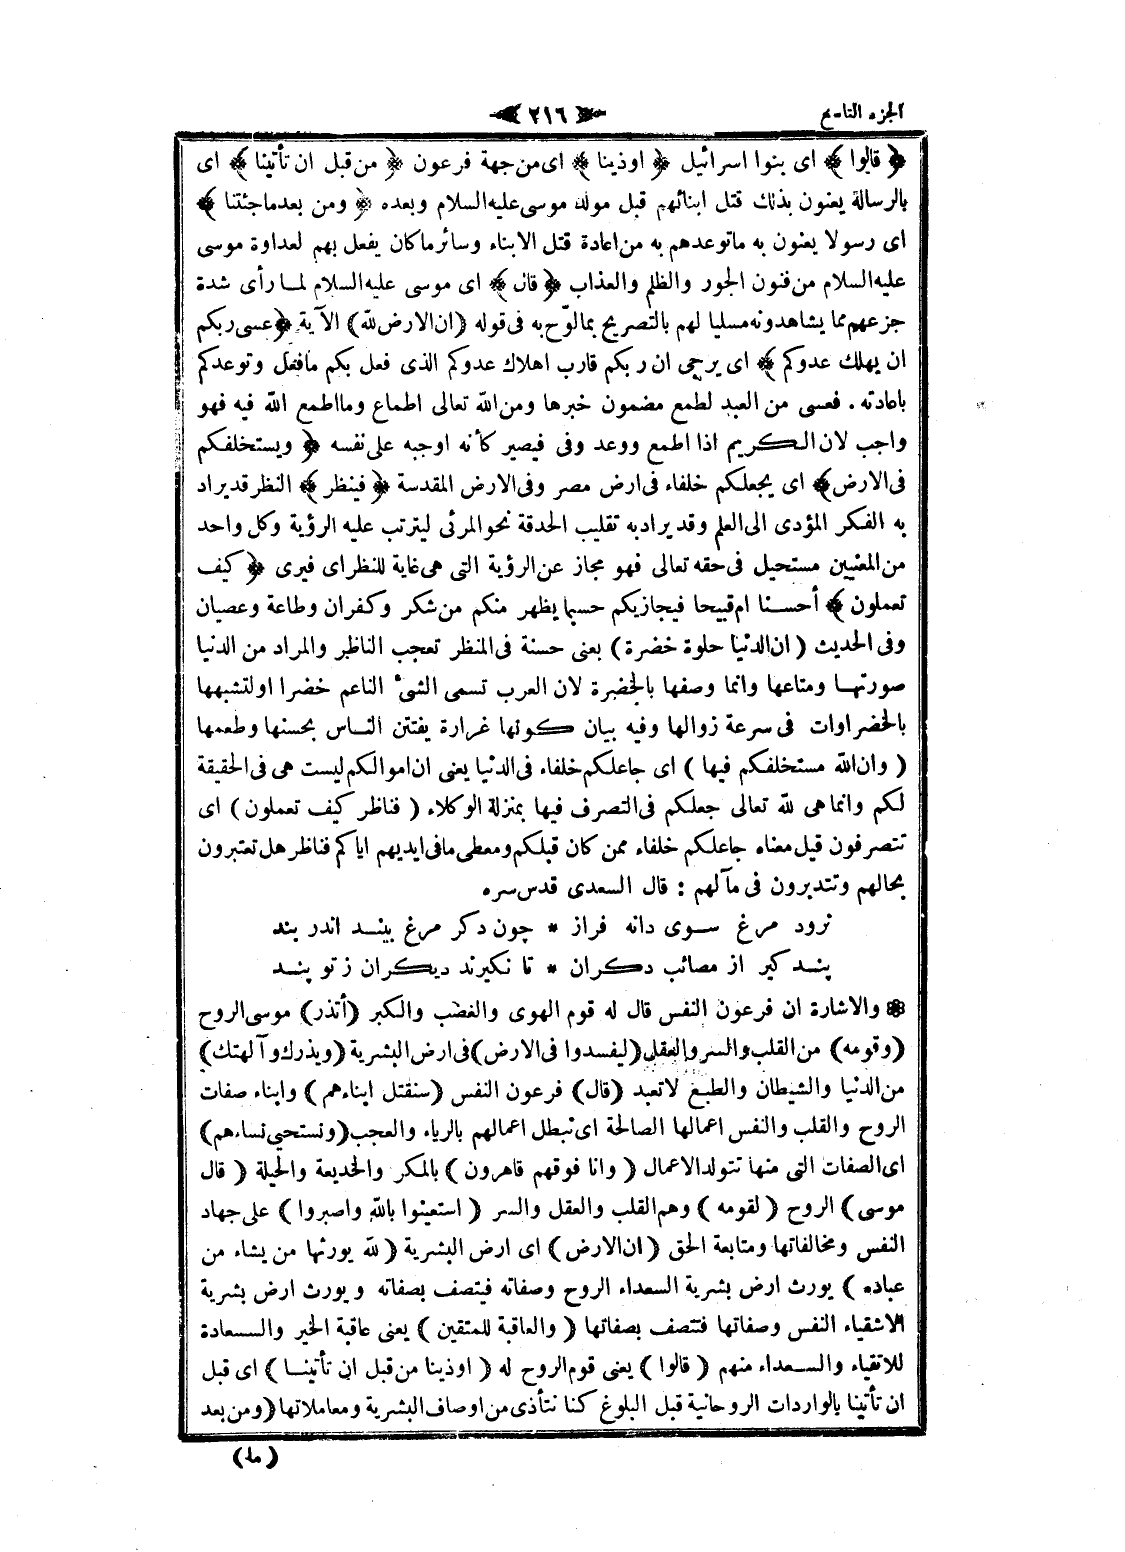 الجزء التاسع
٢١٦
﴿ قالوا ﴾ اى بنوا اسرائيل ﴿ اوذينا ﴾ اى من جهة فرعون ﴿ من قبل ان تأتينا ﴾ اى
بالرسالة يعنون بذلك قتل ابنائهم قبل مولد موسى عليه السلام وبعده ﴿ ومن بعد ماجئتنا ﴾
اى رسولا يعنون به ماتوعدهم به من اعادة قتل الابناء وسائر ماكان يفعل بهم لعداوة موسى
عليه السلام من فنون الجور والظلم والعذاب ﴿ قال ﴾ اى موسى عليه السلام لما رأى شدة
جزعهم مما يشاهدونه مسليا لهم بالتصريح بما لوّح به فى قوله (ان الارض لله) الآية ﴿ عسى ربكم
ان يهلك عدوكم ﴾ اى يرجى ان ربكم قارب اهلاك عدوكم الذى فعل بكم مافعل وتوعدكم
باعادته . فعسى من العبد لطمع مضمون خبرها ومن الله تعالى اطماع ومااطمع الله فيه فهو
واجب لان الكريم اذا اطمع ووعد وفى فيصير كأنه اوجبه على نفسه ﴿ ويستخلفكم
فى الارض ﴾ اى يجعلكم خلفاء فى ارض مصر وفى الارض المقدسة ﴿ فينظر ﴾ النظر قديراد
به الفكر المؤدى الى العلم وقد يراد به تقليب الحدقة نحو المرئى ليترتب عليه الرؤية وكل واحد
من المعنيين مستحيل فى حقه تعالى فهو مجاز عن الرؤية التى هى غاية للنظر اى فيرى ﴿ كيف
تعملون ﴾ أحسنا ام قبيحا فيجازيكم حسبما يظهر منكم من شكر وكفران وطاعة وعصيان
وفى الحديث ( ان الدنيا حلوة خضرة ) يعنى حسنة فى المنظر تعجب الناظر والمراد من الدنيا
صورتها ومتاعها وانما وصفها بالخضرة لان العرب تسمى الشئ الناعم خضرا اولتشبهها
بالخضراوات فى سرعة زوالها وفيه بيان كونها غرارة يفتتن الناس بحسنها وطعمها
( وان الله مستخلفكم فيها ) اى جاعلكم خلفاء فى الدنيا يعنى ان اموالكم ليست هى فى الحقيقة
لكم وانما هى لله تعالى جعلكم فى التصرف فيها بمنزلة الوكلاء ( فناظر كيف تعملون ) اى
تتصرفون قيل معناه جاعلكم خلفاء ممن كان قبلكم ومعطى مافى ايديهم اياكم فناظر هل تعتبرون
بحالهم وتتدبرون فى مآلهم : قال السعدى قدس سره
نرود مرغ سوى دانه فراز * چون دكر مرغ بيند اندر بند
پند كير از مصائب دكران * تا نكيرند ديكران ز تو پند
* والاشارة ان فرعون النفس قال له قوم الهوى والغضب والكبر (أتذر) موسى الروح
(وقومه) من القلب والسر والعقل (ليفسدوا فى الارض) فى ارض البشرية (ويذرك وآلهتك)
من الدنيا والشيطان والطبع لاتعبد (قال) فرعون النفس (سنقتل ابناءهم ) وابناء صفات
الروح والقلب والنفس اعمالها الصالحة اى نبطل اعمالهم بالرياء والعجب (ونستحيى نساءهم)
اى الصفات التى منها تتولد الاعمال ( وانا فوقهم قاهرون ) بالمكر والخديعة والحيلة ( قال
موسى ) الروح ( لقومه ) وهم القلب والعقل والسر ( استعينوا بالله واصبروا ) على جهاد
النفس ومخالفاتها ومتابعة الحق ( ان الارض ) اى ارض البشرية ( لله يورثها من يشاء من
عباده ) يورث ارض بشرية السعداء الروح وصفاته فيتصف بصفاته ويورث ارض بشرية
الاشقياء النفس وصفاتها فتتصف بصفاتها ( والعاقبة للمتقين ) يعنى عاقبة الخير والسعادة
للاتقياء والسعداء منهم ( قالوا ) يعنى قوم الروح له ( اوذينا من قبل ان تأتينا ) اى قبل
ان تأتينا بالواردات الروحانية قبل البلوغ كنا نتأذى من اوصاف البشرية ومعاملاتها (ومن بعد
(ما)